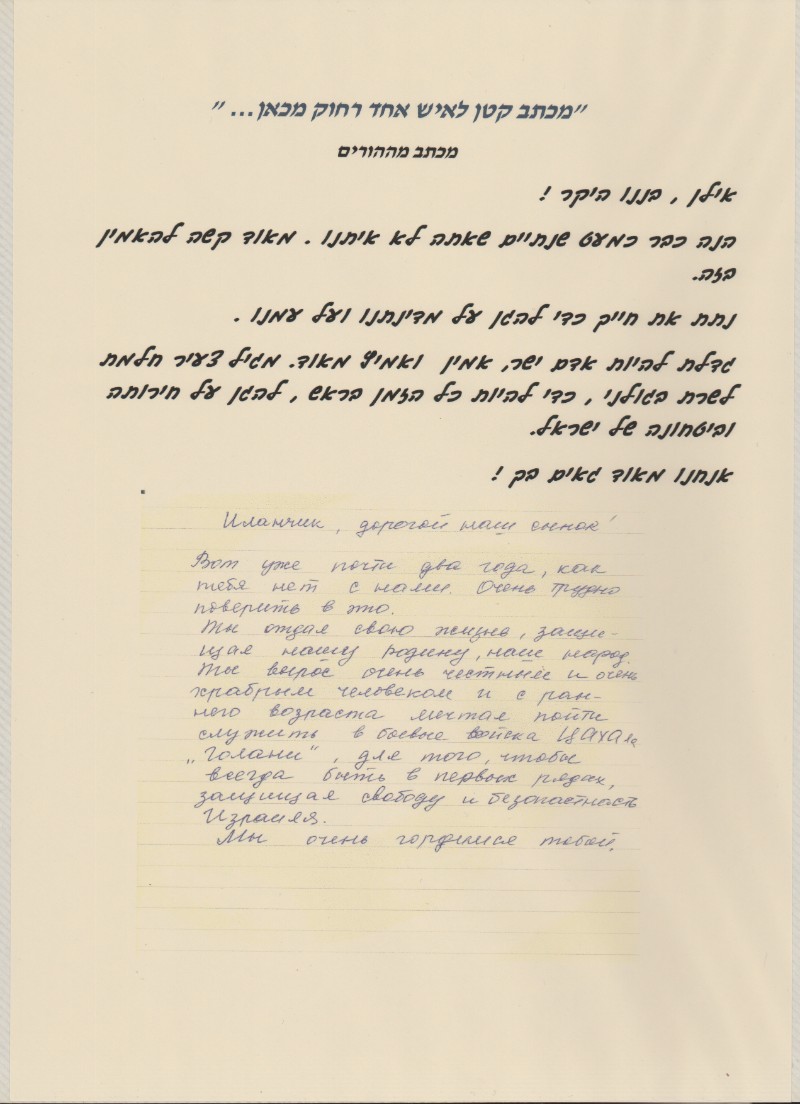 "מכתב קטן לאיש אחד רחוק מכאן... "
מכתב מההורים
אילן , בננו היקר !
הנה כבר כמעט שנתיים שאתה לא איתנו . מאוד קשה להאמין
בזה.
נתת את חייך כדי להגן על מדינתנו ועל עמנו .
גדלת להיות אדם ישר, אמין ואמיץ מאוד. מגיל צעיר חלמת
לשרת בגולני , כדי להיות כל הזמן בראש , להגן על חירותה
וביטחונה של ישראל.
אנחנו מאוד גאים בך !
Иланчик, дорогой наш сынок!
Вот уже почти два года, как
тебя нет с нами. Очень трудно
поверить в это.
Ты отдал свою жизнь, защи-
щая нашу родину, наш народ.
Ты вырос очень честным и очень
храбрым человеком и с ран-
него возраста мечтал пойти
служить в боевые войска ЦАХАЛа
„Голани", для того, чтобы
всегда быть в первых рядах,
защищая свободу и безопастность
Израиля.
Мы очень гордимся тобой.